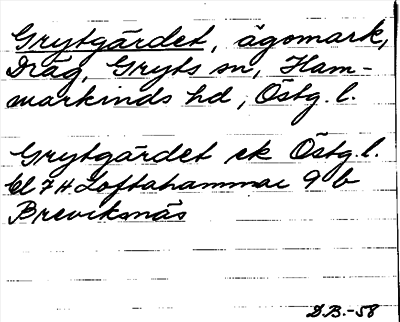 Grytgärdet, ägomark,
Dräg, Gryts sn, Ham-
markinds hd, Östg. l.
Grytgärdet ek Östg. l.
bl 7H Loftahammar 9 b
Breviksnäs
D.B.-58